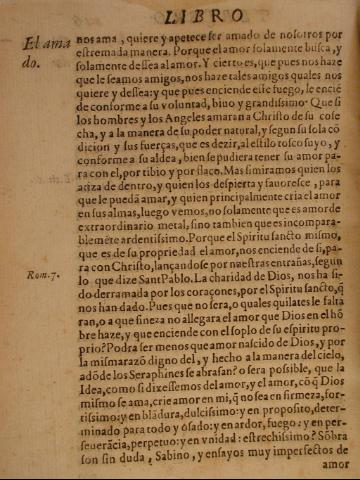 LIBRO
El ama
do.
nos ama, quiere y apetece ser amado de nosotros por
estremada manera. Porque el amor solamente busca, y
solamente dessea al amor. Y cierto es, que pues nos haze
que le seamos amigos, nos haze tales amigos quales nos
quiere y dessea: y que pues enciende este fuego, le encié
de conforme a su voluntad, biuo y grandissimo. Que si
los hombres y los Angeles amaran a Christo de su cose
cha, y a la manera de su poder natural, y segun su sola cõ
dicion y sus fuerças, que es dezir, al estilo tosco suyo, y
conforme a su aldea, bien se pudiera tener su amor pa-
ra con el, por tibio y por flaco. Mas si miramos quien los
atiza de dentro, y quien los despierta y fauoresce, para
que le puedã amar, y quien principalmente cria el amor
en sus almas, luego vemos, no solamente que es amor de
extraordinario metal, sino tambien que es incompara-
blemẽte ardentissimo. Porque el Spiritu sancto mismo,
que es de su propriedad el amor, nos enciende de si, pa-
ra con Christo, lançandose por nuestras entrañas, segun
Rom. 7.
lo que dize Sant Pablo. La charidad de Dios, nos ha si-
do derramada por los coraçones, por el Spiritu sancto, q̃
nos han dado. Pues que no sera, o quales quilates le falta
ran, o a que fineza no allegara el amor que Dios en el hõ
bre haze, y que enciende con el soplo de su espiritu pro-
prio? Podra ser menos que amor nascido de Dios, y por
la misma razõ digno del, y hecho a la manera del cielo,
adõde los Seraphines se abrasan? o sera possible, que la
Idea, como si dixessemos del amor, y el amor, cõ q̃ Dios
mismo se ama, crie amor en mi, q̃ no sea en firmeza, for-
tissimo: y en blãdura, dulcissimo: y en proposito, deter-
minado para todo y osado: y en ardor, fuego: y en per-
seuerãcia, perpetuo: y en vnidad: estrechissimo? Sõbra
son sin duda, Sabino, y ensayos muy imperfectos de
amor